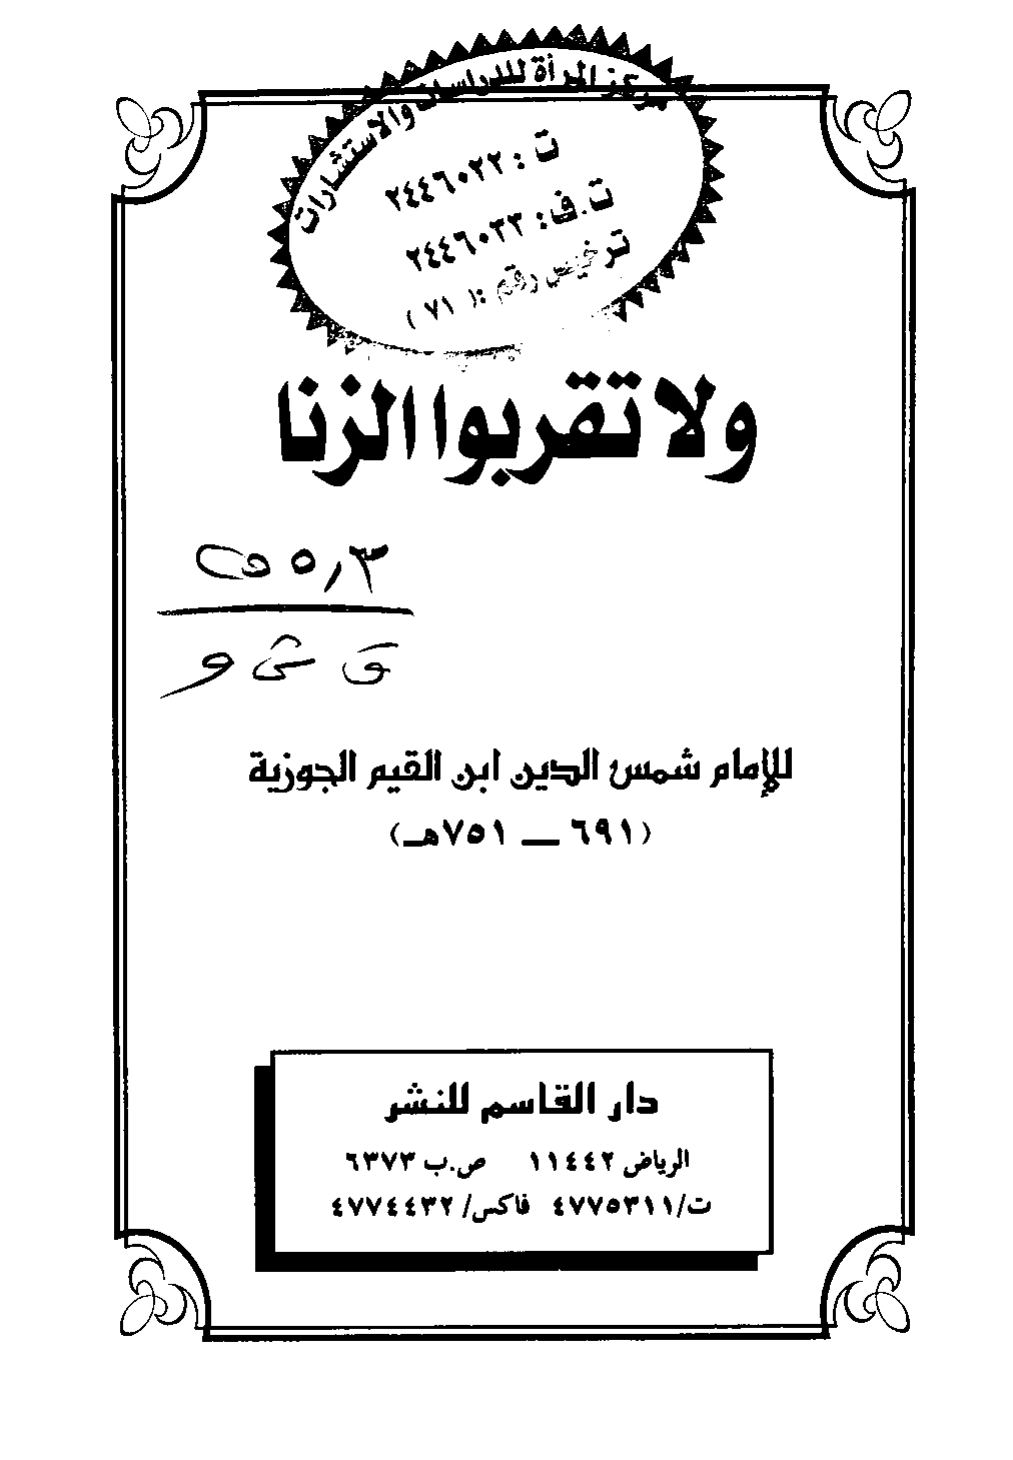 مركز المرأة للدراسات والاستشارات
ت : ٢٤٤٦٠٢٢
ت.ف: ٢٤٤٦٠٣٣
ترخيص رقم :( ٧١ )
ولا تقربوا الزنا
للإمام شمس الدين ابن القيم الجوزية
(٦٩١ — ٧٥١هـ)
دار القاسم للنشر
الرياض ١١٤٤٢ ص.ب ٦٣٧٣
ت/٤٧٧٥٣١١ فاكس/ ٤٧٧٤٤٣٢